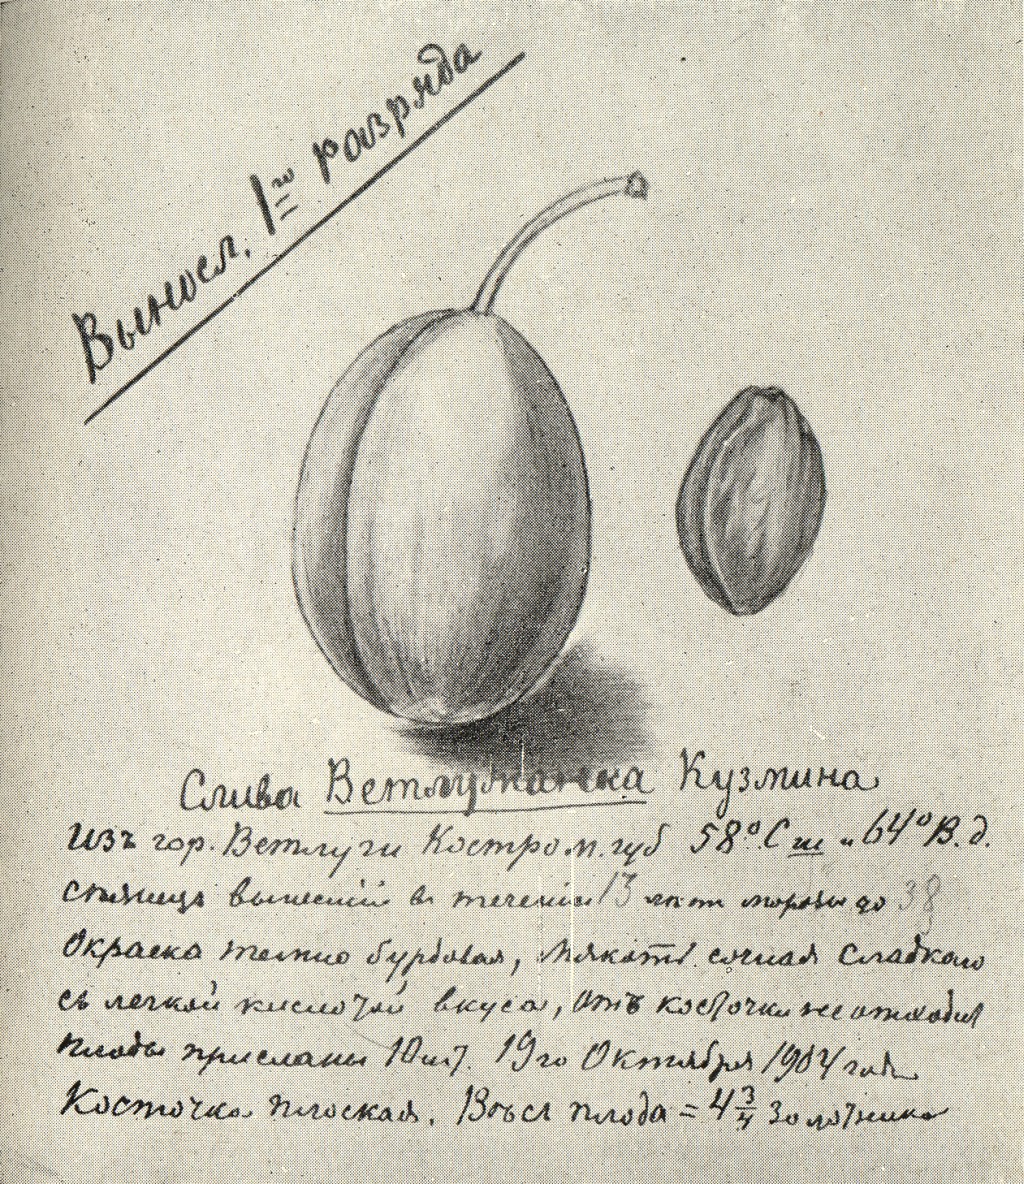 Вынося. 1го разряда
Слива Ветлужанка Кузмина
Изъ гор. Ветлуги Костром. губ 58° С ш и 64° В. д.
вынесшій в течении 13 лѣт морозы до 38
Окраска темно бурдовая, мякоть сочная сладкаго
съ легкой кислотой вкуса, отъ косточки не отходит
плоды присланы 10 шт. 19го Октября 1904 года
Косточка плоская. Вѣсъ плода = 4 3/4 золотника